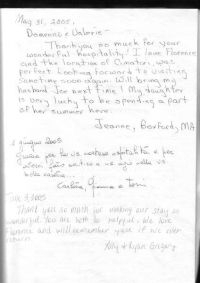 May 31, 2005.
Domenic & Valerie -
Thank you so much for your
wonderful hospitality! I love Florence
and the location of Cimatori, was
perfect. Looking forward to visiting
Sometime soon again. Will bring my
husband Joe next time! My daughter
is very lucky to be spending a part
of her summer here.
Jeanne, Boxford, MA
2 giugno 2005
Grazie per la vs. cortese ospitalità e per
averci fatto sentire a ns. agio nella vs.
bella casina...
Carlina, e Toni
June 3, 2005
Thank you so much for making our stay so
wonderful. You are both so helpful. We love
Florence and will remember you if we ever
return.
Kelly & Ryan Gregory